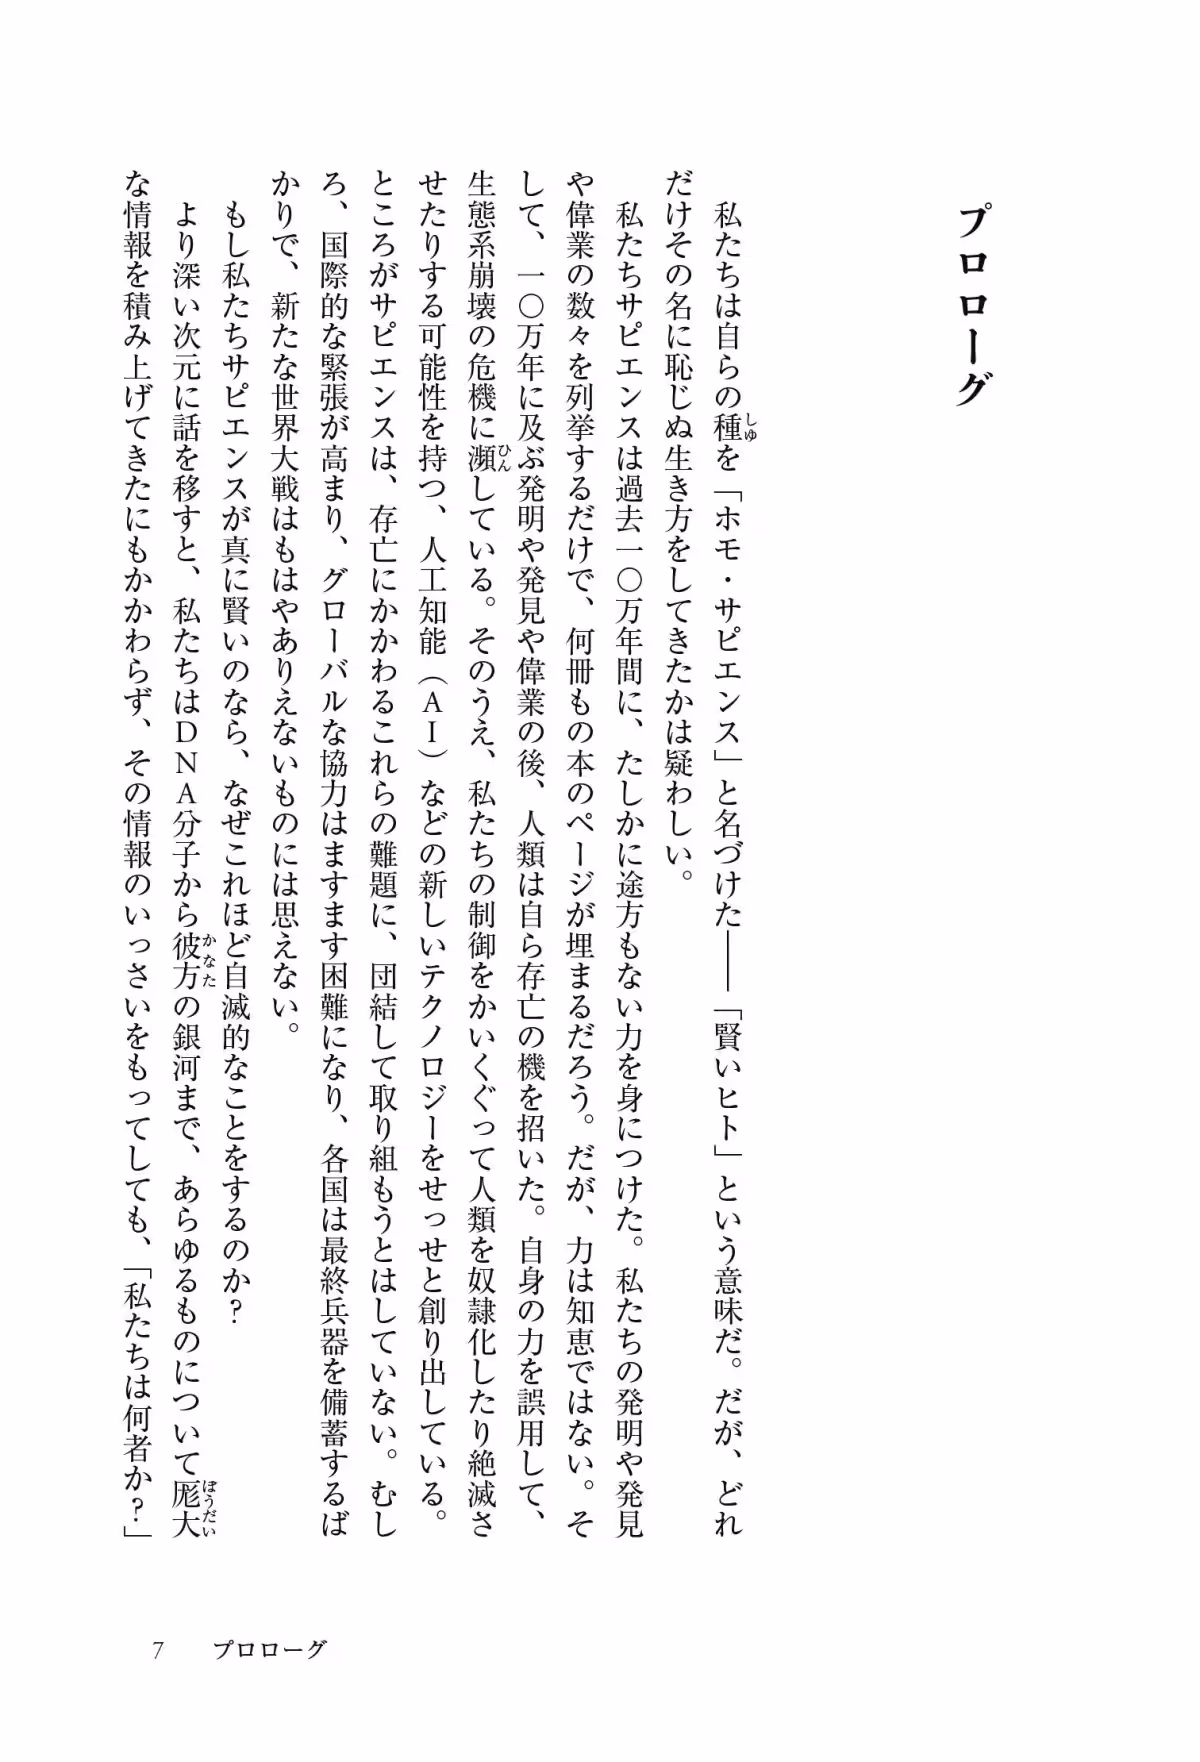 プロローグ
私たちは自らの種を「ホモ・サピエンス」と名づけた――「賢いヒト」という意味だ。だが、どれ
だけその名に恥じぬ生き方をしてきたかは疑わしい。
私たちサピエンスは過去一〇万年間に、たしかに途方もない力を身につけた。私たちの発明や発見
や偉業の数々を列挙するだけで、何冊もの本のページが埋まるだろう。だが、力は知恵ではない。そ
して、一〇万年に及ぶ発明や発見や偉業の後、人類は自ら存亡の機を招いた。自身の力を誤用して、
生態系崩壊の危機に瀕している。そのうえ、私たちの制御をかいくぐって人類を奴隷化したり絶滅さ
せたりする可能性を持つ、人工知能（ＡＩ）などの新しいテクノロジーをせっせと創り出している。
ところがサピエンスは、存亡にかかわるこれらの難題に、団結して取り組もうとはしていない。むし
ろ、国際的な緊張が高まり、グローバルな協力はますます困難になり、各国は最終兵器を備蓄するば
かりで、新たな世界大戦はもはやありえないものには思えない。
もし私たちサピエンスが真に賢いのなら、なぜこれほど自滅的なことをするのか？
より深い次元に話を移すと、私たちはＤＮＡ分子から彼方の銀河まで、あらゆるものについて厖大
な情報を積み上げてきたにもかかわらず、その情報のいっさいをもってしても、「私たちは何者か？」
しゆ
ひん
かなた
ぼうだい
7　プロローグ